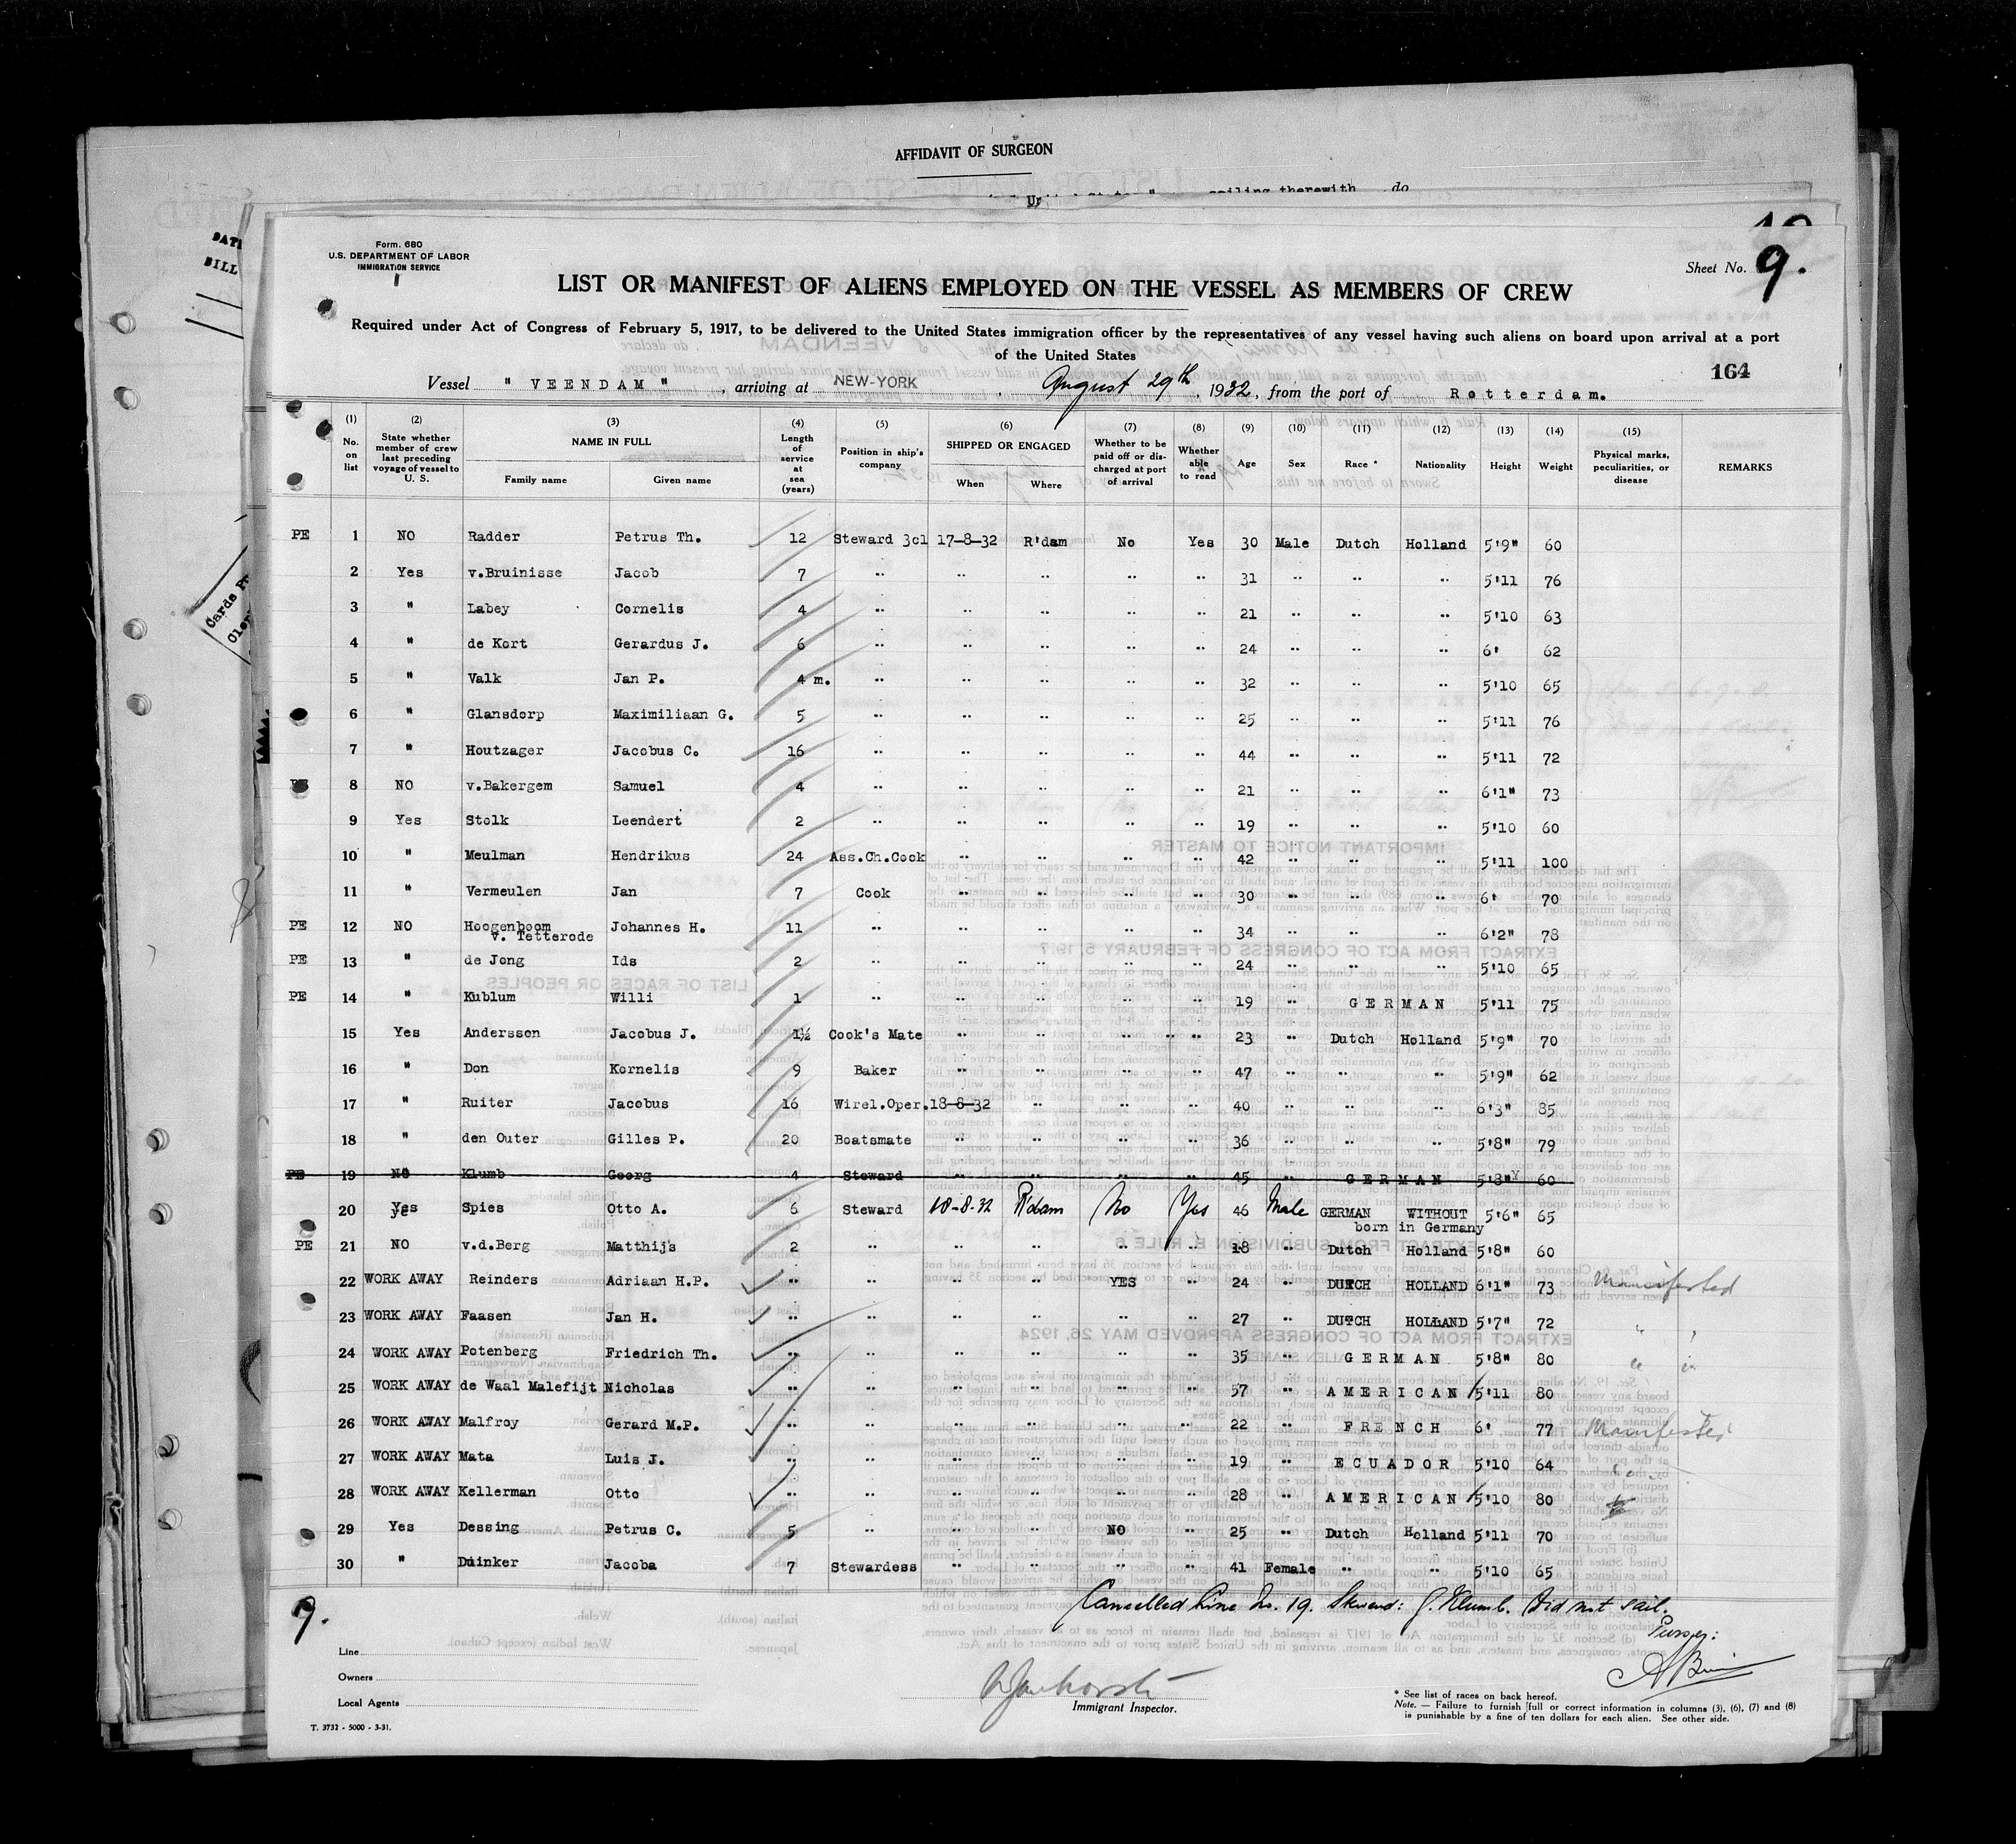 AFFIDAVIT OF SURGEON
sailing therewith do
Form. 680
U.S. DEPARTMENT OF LABOR
IMMIGRATION SERVICE
Sheet No. 9.
LIST OR MANIFEST OF ALIENS EMPLOYED ON THE VESSEL AS MEMBERS OF CREW
Required under Act of Congress of February 5, 1917, to be delivered to the United States immigration officer by the representatives of any vessel having such aliens on board upon arrival at a port
of the United States
164
Vessel " VEENDAM ", arriving at NEW-YORK, August 29th, 1932, from the port of Rotterdam.
(1) No. on list (2) State whether member of crew last preceding voyage of vessel to U. S. (3) NAME IN FULL Family name Given name (4) Length of service at sea (years) (5) Position in ship's company (6) SHIPPED OR ENGAGED When Where (7) Whether to be paid off or discharged at port of arrival (8) Whether able to read (9) Age (10) Sex (11) Race * (12) Nationality (13) Height (14) Weight (15) Physical marks, peculiarities, or disease REMARKS
PE 1 NO Radder Petrus Th. 12 Steward 3cl 17-8-32 R'dam No Yes 30 Male Dutch Holland 5'9" 60
2 Yes v.Bruinisse Jacob 7 " " " " " 31 " " " 5'11 76
3 " Labey Cornelis 4 " " " " " 21 " " " 5'10 63
4 " de Kort Gerardus J. 6 " " " " " 24 " " " 6' 62
5 " Valk Jan P. 4 m. " " " " " 32 " " " 5'10 65
6 " Glansdorp Maximiliaan G. 5 " " " " " 25 " " " 5'11 76
7 " Houtzager Jacobus C. 16 " " " " " 44 " " " 5'11 72
PE 8 NO v.Bakergem Samuel 4 " " " " " 21 " " " 6'1" 73
9 Yes Stolk Leendert 2 " " " " " 19 " " " 5'10 60
10 " Meulman Hendrikus 24 Ass.Ch.Cook " " " " 42 " " " 5'11 100
11 " Vermeulen Jan 7 Cook " " " " 30 " " " 6' 70
PE 12 NO Hoogenboom v. Tetterode Johannes H. 11 " " " " " 34 " " " 6'2" 78
PE 13 " de Jong Ids 2 " " " " " 24 " " " 5'10 65
PE 14 " Kublum Willi 1 " " " " " 19 " GERMAN 5'11 75
15 Yes Andersson Jacobus J. 1½ Cook's Mate " " " " 23 " Dutch Holland 5'9" 70
16 " Don Kornelis 9 Baker " " " " 47 " " " 5'9" 62
17 " Ruiter Jacobus 16 Wirel.Oper. 18-8-32 " " " 40 " " " 6'3" 85
18 " den Outer Gilles P. 20 Boatsmate " " " " 36 " " " 5'8" 79
PE 19 NO Klumb Georg 4 Steward " " " " 45 " GERMAN 5'8" 60
20 Yes Spies Otto A. 6 Steward 18-8-32 R'dam No Yes 46 Male GERMAN WITHOUT 5'6" 65
born in Germany
PE 21 NO v.d.Berg Matthijs 2 " " " " " 18 " Dutch Holland 5'8" 60
22 WORK AWAY Reinders Adriaan H.P. " " " " YES " 24 " DUTCH HOLLAND 6'1" 73 Manifested
23 WORK AWAY Faasen Jan H. " " " " " " 27 " DUTCH HOLLAND 5'7" 72 " "
24 WORK AWAY Potenberg Friedrich Th. " " " " " " 35 " GERMAN 5'8" 80 " "
25 WORK AWAY de Waal Malefijt Nicholas " " " " " " 57 " AMERICAN 5'11 80
26 WORK AWAY Malfroy Gerard M.P. " " " " " " 22 " FRENCH 6' 77 Manifested
27 WORK AWAY Mata Luis J. " " " " " " 19 " ECUADOR 5'10 64 "
28 WORK AWAY Kellerman Otto " " " " " " 28 " AMERICAN 5'10 80
29 Yes Dessing Petrus C. 5 " " " NO " 25 " Dutch Holland 5'11 70
30 " Duinker Jacoba 7 Stewardess " " " " 41 Female " " 5'10 65
Cancelled Line No. 19. Steward: G. Klumb. Did not sail.
9.
Purser:
Line
Owners
Local Agents
Immigrant Inspector.
* See list of races on back hereof.
Note. — Failure to furnish full or correct information in columns (3), (6), (7) and (8)
is punishable by a fine of ten dollars for each alien. See other side.
T. 3732 - 5000 - 3-31.